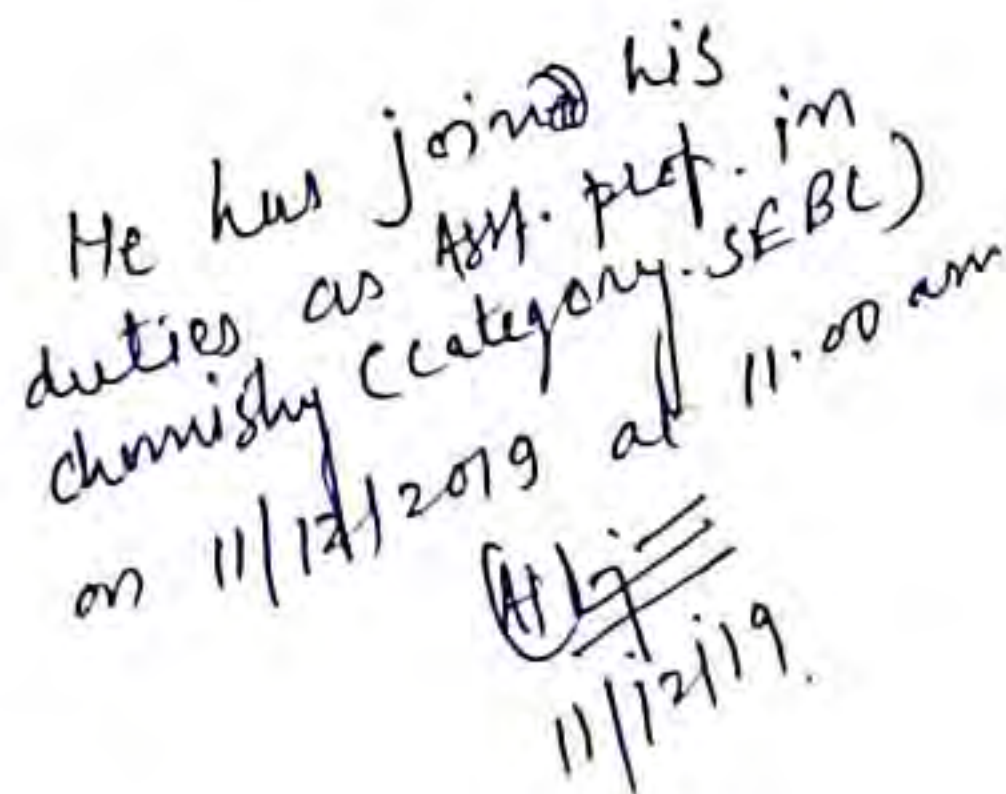 He has joined his
duties as Asst. prof. in
chemistry (category. SEBC)
on 11/12/2019 at 11.00 am
11/12/19.